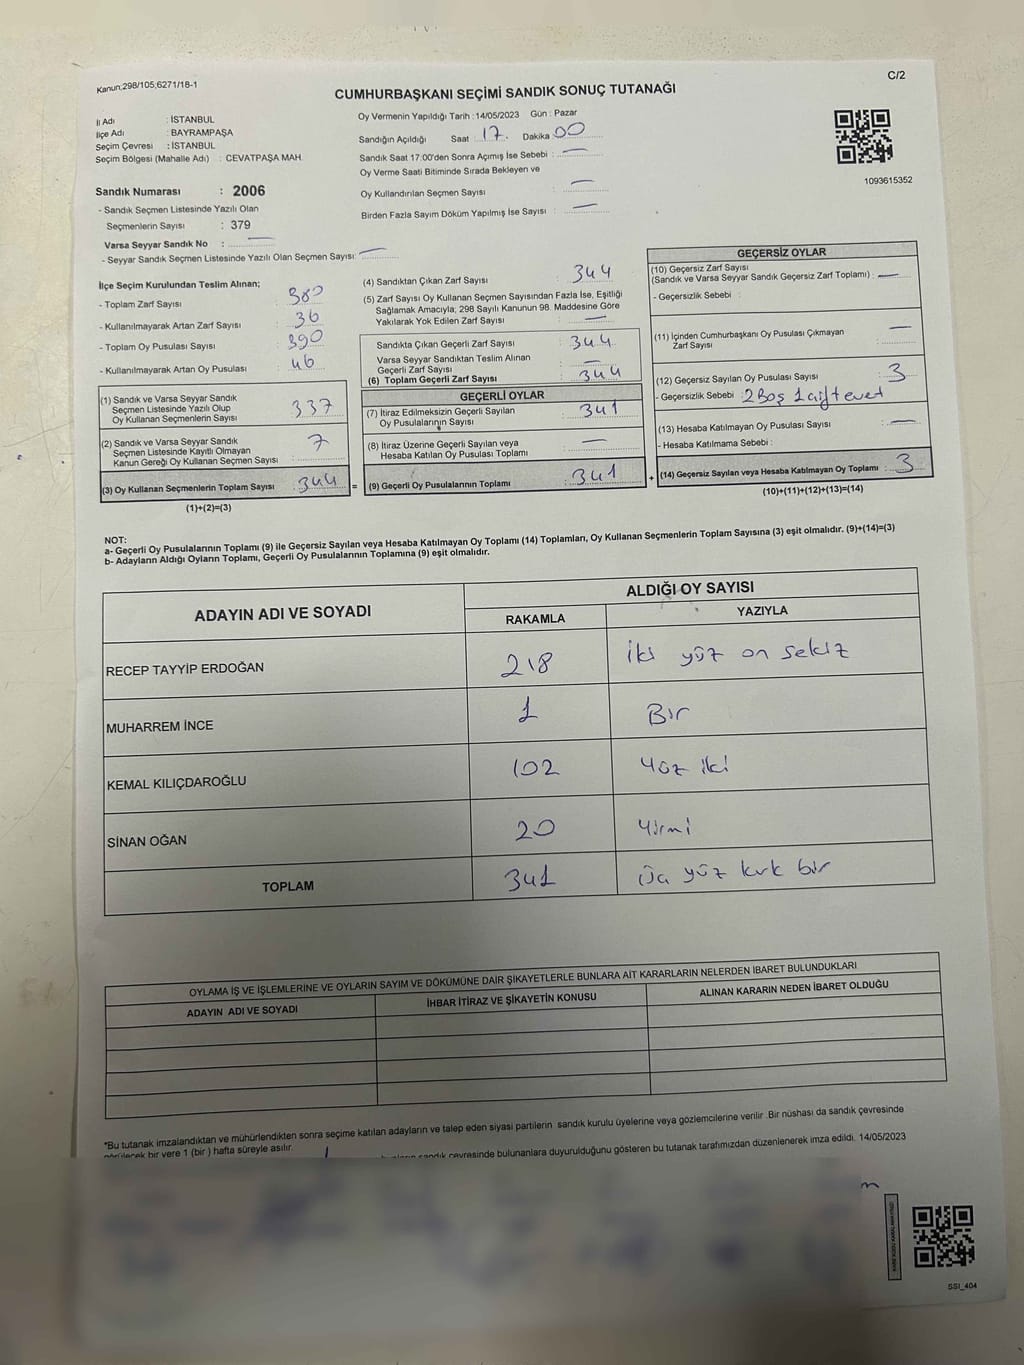 Kanun:298/105;6271/18-1
C/2
CUMHURBAŞKANI SEÇİMİ SANDIK SONUÇ TUTANAĞI
İl Adı : İSTANBUL
İlçe Adı : BAYRAMPAŞA
Seçim Çevresi : İSTANBUL
Seçim Bölgesi (Mahalle Adı) : CEVATPAŞA MAH.
Oy Vermenin Yapıldığı Tarih : 14/05/2023 Gün : Pazar
Sandığın Açıldığı Saat : 17. Dakika : 00
Sandık Saat 17:00'den Sonra Açımış İse Sebebi : —
Oy Verme Saati Bitiminde Sırada Bekleyen ve
Oy Kullandırılan Seçmen Sayısı : —
Birden Fazla Sayım Döküm Yapılmış İse Sayısı : —
1093615352
Sandık Numarası : 2006
- Sandık Seçmen Listesinde Yazılı Olan
Seçmenlerin Sayısı : 379
Varsa Seyyar Sandık No : —
- Seyyar Sandık Seçmen Listesinde Yazılı Olan Seçmen Sayısı: —
İlçe Seçim Kurulundan Teslim Alınan;
- Toplam Zarf Sayısı : 380
- Kullanılmayarak Artan Zarf Sayısı : 36
- Toplam Oy Pusulası Sayısı : 390
- Kullanılmayarak Artan Oy Pusulası : 46
(1) Sandık ve Varsa Seyyar Sandık
Seçmen Listesinde Yazılı Olup
Oy Kullanan Seçmenlerin Sayısı : 337
(2) Sandık ve Varsa Seyyar Sandık
Seçmen Listesinde Kayıtlı Olmayan
Kanun Gereği Oy Kullanan Seçmen Sayısı : 7
(3) Oy Kullanan Seçmenlerin Toplam Sayısı : 344 =
(1)+(2)=(3)
(4) Sandıktan Çıkan Zarf Sayısı : 344
(5) Zarf Sayısı Oy Kullanan Seçmen Sayısından Fazla İse, Eşitliği
Sağlamak Amacıyla; 298 Sayılı Kanunun 98. Maddesine Göre
Yakılarak Yok Edilen Zarf Sayısı : —
Sandıkta Çıkan Geçerli Zarf Sayısı : 344
Varsa Seyyar Sandıktan Teslim Alınan
Geçerli Zarf Sayısı : —
(6) Toplam Geçerli Zarf Sayısı : 344
GEÇERLİ OYLAR
(7) İtiraz Edilmeksizin Geçerli Sayılan
Oy Pusulalarının Sayısı : 341
(8) İtiraz Üzerine Geçerli Sayılan veya
Hesaba Katılan Oy Pusulası Toplamı : —
(9) Geçerli Oy Pusulalarının Toplamı : 341 +
GEÇERSİZ OYLAR
(10) Geçersiz Zarf Sayısı
(Sandık ve Varsa Seyyar Sandık Geçersiz Zarf Toplamı) : —
- Geçersizlik Sebebi :
(11) İçinden Cumhurbaşkanı Oy Pusulası Çıkmayan
Zarf Sayısı : —
(12) Geçersiz Sayılan Oy Pusulası Sayısı : 3
- Geçersizlik Sebebi : 2 Boş 1 çift evet
(13) Hesaba Katılmayan Oy Pusulası Sayısı : —
- Hesaba Katılmama Sebebi :
(14) Geçersiz Sayılan veya Hesaba Katılmayan Oy Toplamı : 3
(10)+(11)+(12)+(13)=(14)
NOT:
a- Geçerli Oy Pusulalarının Toplamı (9) ile Geçersiz Sayılan veya Hesaba Katılmayan Oy Toplamı (14) Toplamları, Oy Kullanan Seçmenlerin Toplam Sayısına (3) eşit olmalıdır. (9)+(14)=(3)
b- Adayların Aldığı Oyların Toplamı, Geçerli Oy Pusulalarının Toplamına (9) eşit olmalıdır.
ADAYIN ADI VE SOYADI
ALDIĞI OY SAYISI
RAKAMLA YAZIYLA
RECEP TAYYİP ERDOĞAN 218 iki yüz on sekiz
MUHARREM İNCE 1 Bir
KEMAL KILIÇDAROĞLU 102 Yüz iki
SİNAN OĞAN 20 Yirmi
TOPLAM 341 Üç yüz kırk bir
OYLAMA İŞ VE İŞLEMLERİNE VE OYLARIN SAYIM VE DÖKÜMÜNE DAİR ŞİKAYETLERLE BUNLARA AİT KARARLARIN NELERDEN İBARET BULUNDUKLARI
ADAYIN ADI VE SOYADI İHBAR İTİRAZ VE ŞİKAYETİN KONUSU ALINAN KARARIN NEDEN İBARET OLDUĞU
*Bu tutanak imzalandıktan ve mühürlendikten sonra seçime katılan adayların ve talep eden siyasi partilerin sandık kurulu üyelerine veya gözlemcilerine verilir .Bir nüshası da sandık çevresinde
görülecek bir yere 1 (bir ) hafta süreyle asılır.
sandık çevresinde bulunanlara duyurulduğunu gösteren bu tutanak tarafımızdan düzenlenerek imza edildi. 14/05/2023
SSI_404